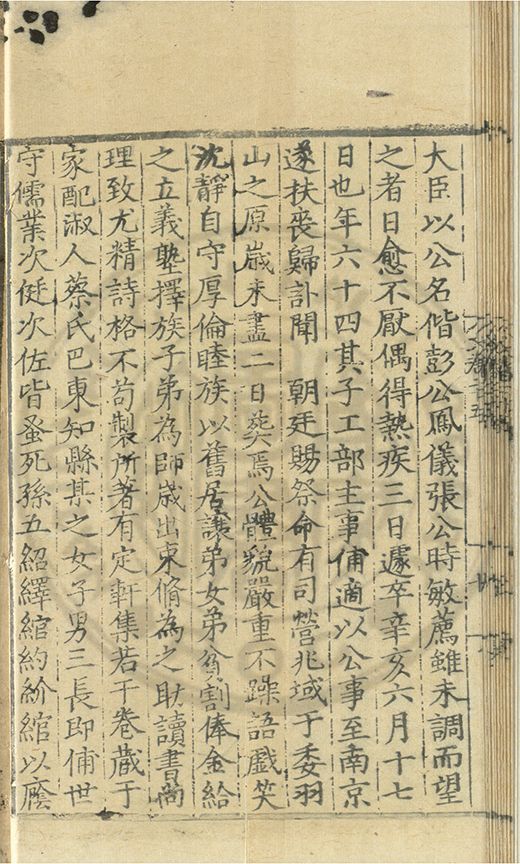 大臣以公名偕彭公鳳儀張公時敏薦雖未調而望
之者日愈不厭偶得熱疾三日遽卒辛亥六月十七
日也年六十四其子工部主事俌適以公事至南京
遂扶喪歸訃聞　朝廷賜祭命有司營兆域于委羽
山之原歲未盡二日葬焉公體貌嚴重不躁語戲笑
沈靜自守厚倫睦族以舊居讓弟女弟貧割俸金給
之立義塾擇族子弟為師歲出束脩為之助讀書尚
理致尤精詩格不苟製所著有定軒集若干卷藏于
家配淑人蔡氏巴東知縣某之女子男三長即俌世
守儒業次侹次佐皆蚤死孫五紹繹綰約紒綰以廕